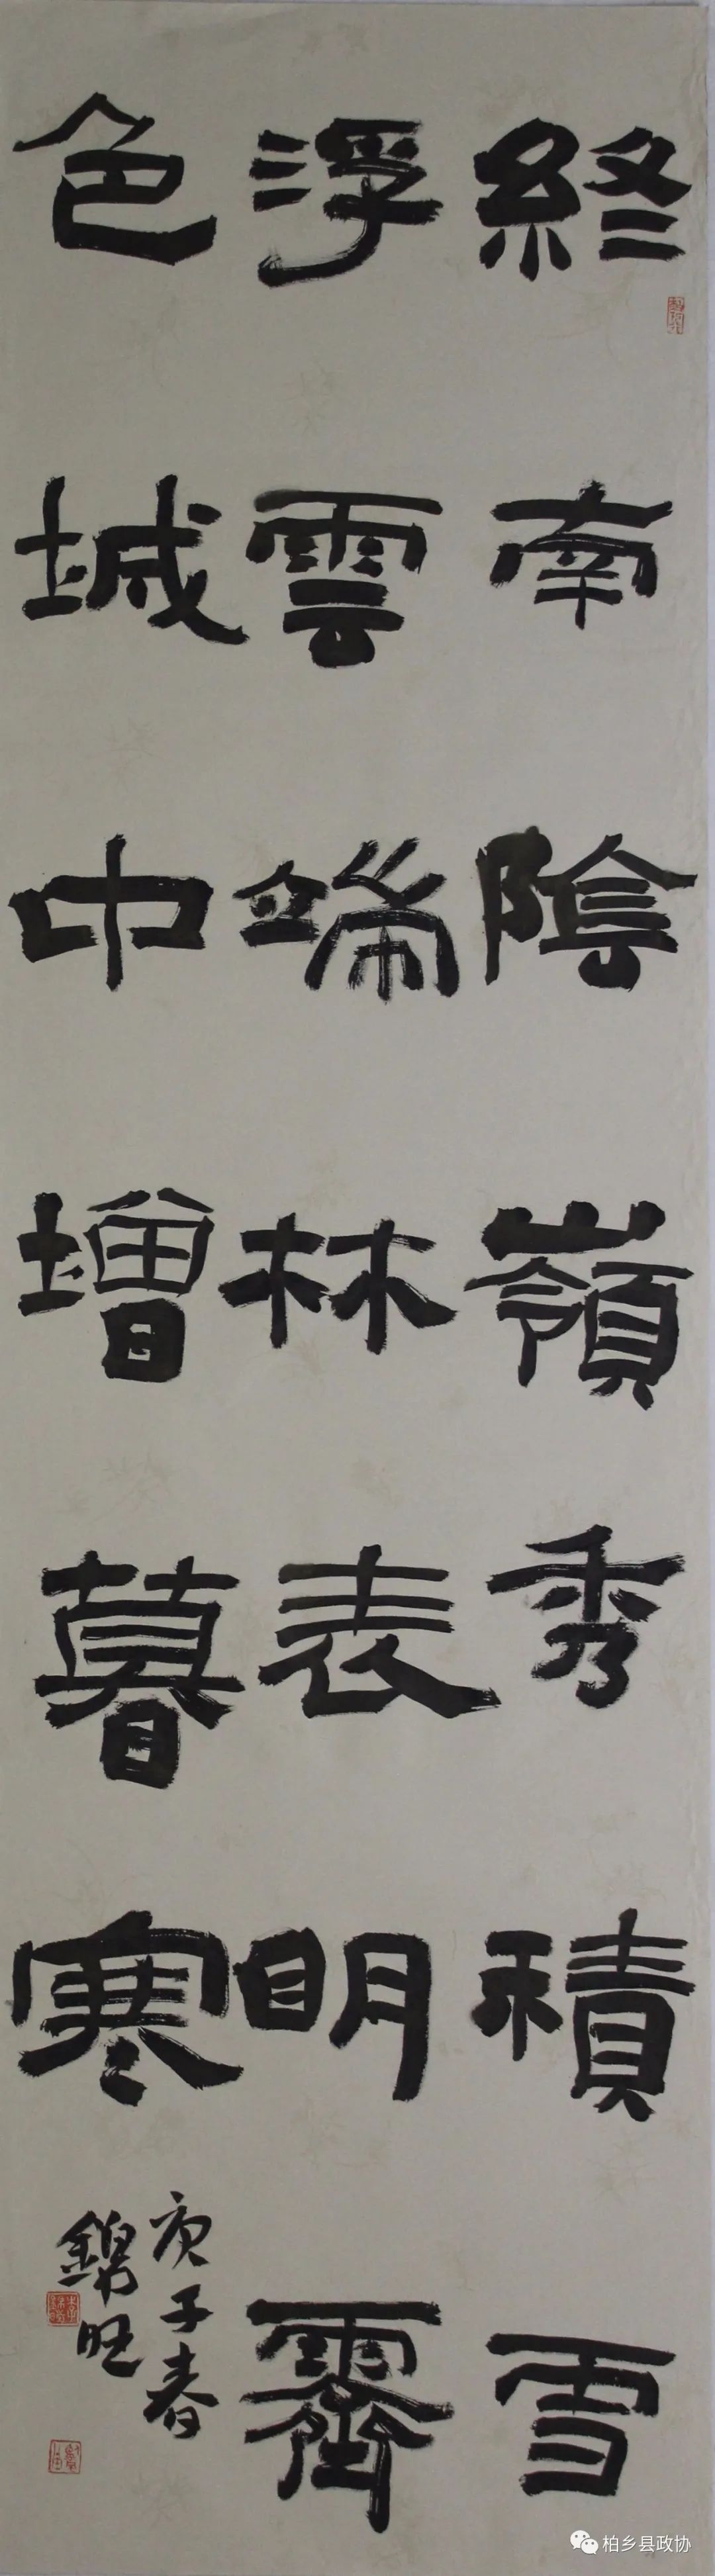 終南陰嶺秀積雪
浮雲端林表明霽
色城中增暮寒
庚子春
錦旺
柏乡县政协